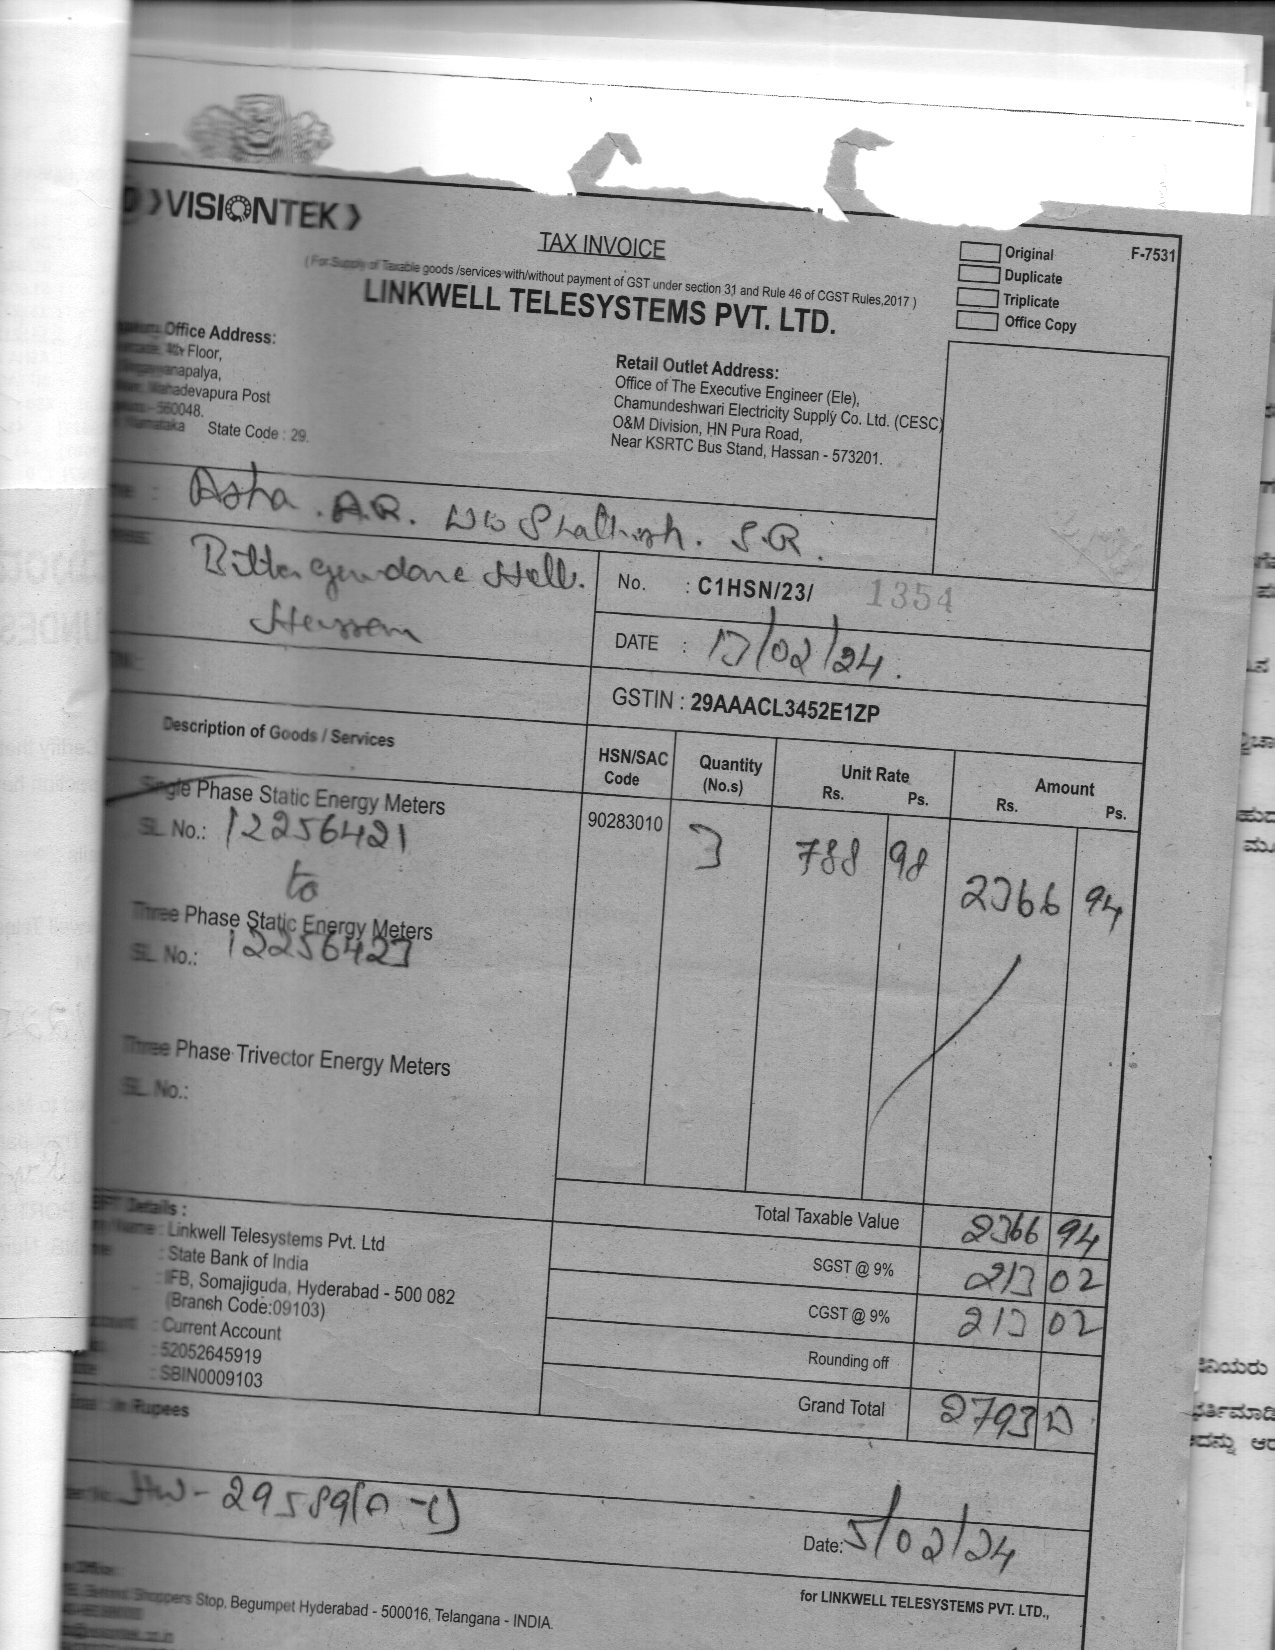 VISIONTEK
TAX INVOICE
Original
F-7531
Duplicate
Triplicate
Office Copy
(For Supply of Taxable goods /services with/without payment of GST under section 31 and Rule 46 of CGST Rules,2017 )
LINKWELL TELESYSTEMS PVT. LTD.
Office Address:
4th Floor,
Mahadevapura Post
- 560048.
Karnataka State Code : 29.
Retail Outlet Address:
Office of The Executive Engineer (Ele),
Chamundeshwari Electricity Supply Co. Ltd. (CESC)
O&M Division, HN Pura Road,
Near KSRTC Bus Stand, Hassan - 573201.
: Asha . A.R. W/o S.R.
Hassan
No. : C1HSN/23/ 1354
DATE : 13/02/24.
GSTIN : 29AAACL3452E1ZP
Description of Goods / Services
HSN/SAC Code
Quantity (No.s)
Unit Rate Rs. Ps.
Amount Rs. Ps.
Single Phase Static Energy Meters
SL No.: 12256421
90283010 3 788 98 2366 94
to
Three Phase Static Energy Meters
SL No.: 12256423
Three Phase Trivector Energy Meters
SL No.:
Total Taxable Value 2366 94
SGST @ 9% 213 02
CGST @ 9% 213 02
Rounding off
Grand Total 2793
Details :
Name : Linkwell Telesystems Pvt. Ltd
: State Bank of India
: IFB, Somajiguda, Hyderabad - 500 082
(Branch Code:09103)
: Current Account
: 52052645919
: SBIN0009103
in Rupees
Date: 5/02/24
Shoppers Stop, Begumpet Hyderabad - 500016, Telangana - INDIA.
for LINKWELL TELESYSTEMS PVT. LTD.,